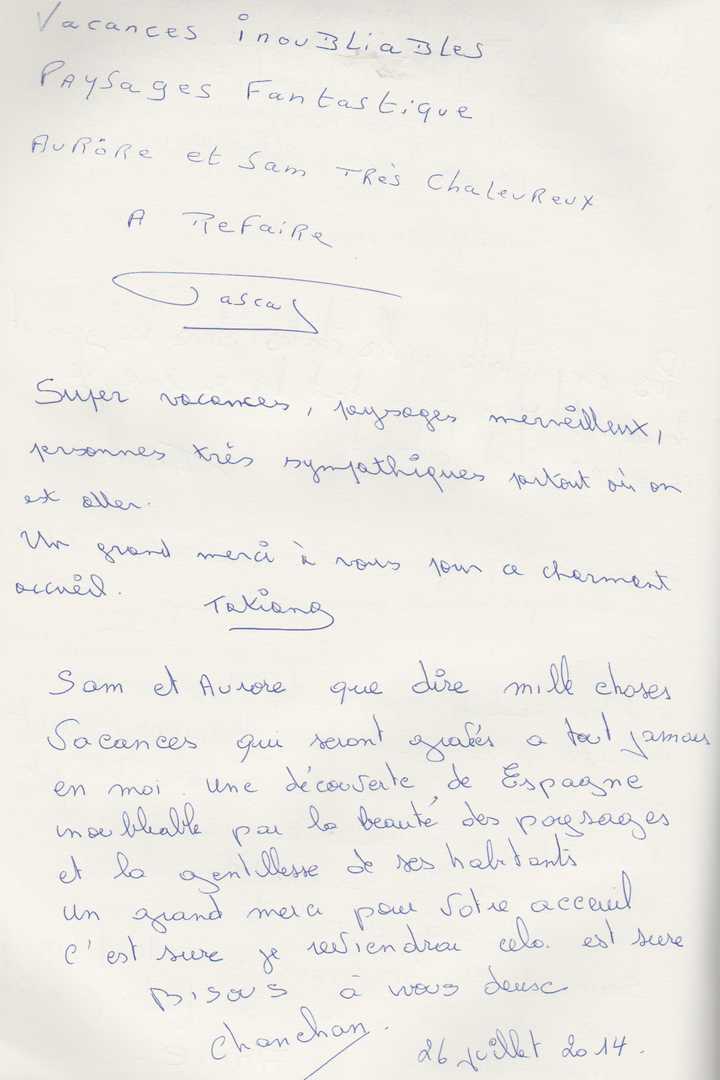 Vacances inouBLiaBLes
PAYSages Fantastique
AuRôRe et Sam TRès ChaLeuReux
A ReFaiRe
Pascal
Super vacances, paysages merveilleux,
personnes très sympathiques partout où on
est aller.
Un grand merci à vous pour ce charmant
accueil.
Tatiana
Sam et Aurore que dire mille choses
Vacances qui seront gravés a tout jamais
en moi. Une découverte de Espagne
inoubliable par la beauté des paysages
et la gentillesse de ses habitants
un grand merci pour votre acceuil
c'est sure je reviendrai cela est sure
Bisous à vous deux
Chanchan.
26 juillet 2014.